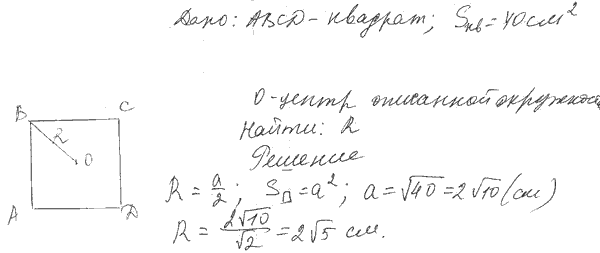 Дано: ABCD - квадрат; Sкв = 40 см²
О-центр описанной окружнос
Найти: R
Решение
B C
R
O
A D
R = a/2; S□ = a²; a = √40 = 2√10 (см)
R = 2√10/√2 = 2√5 см.